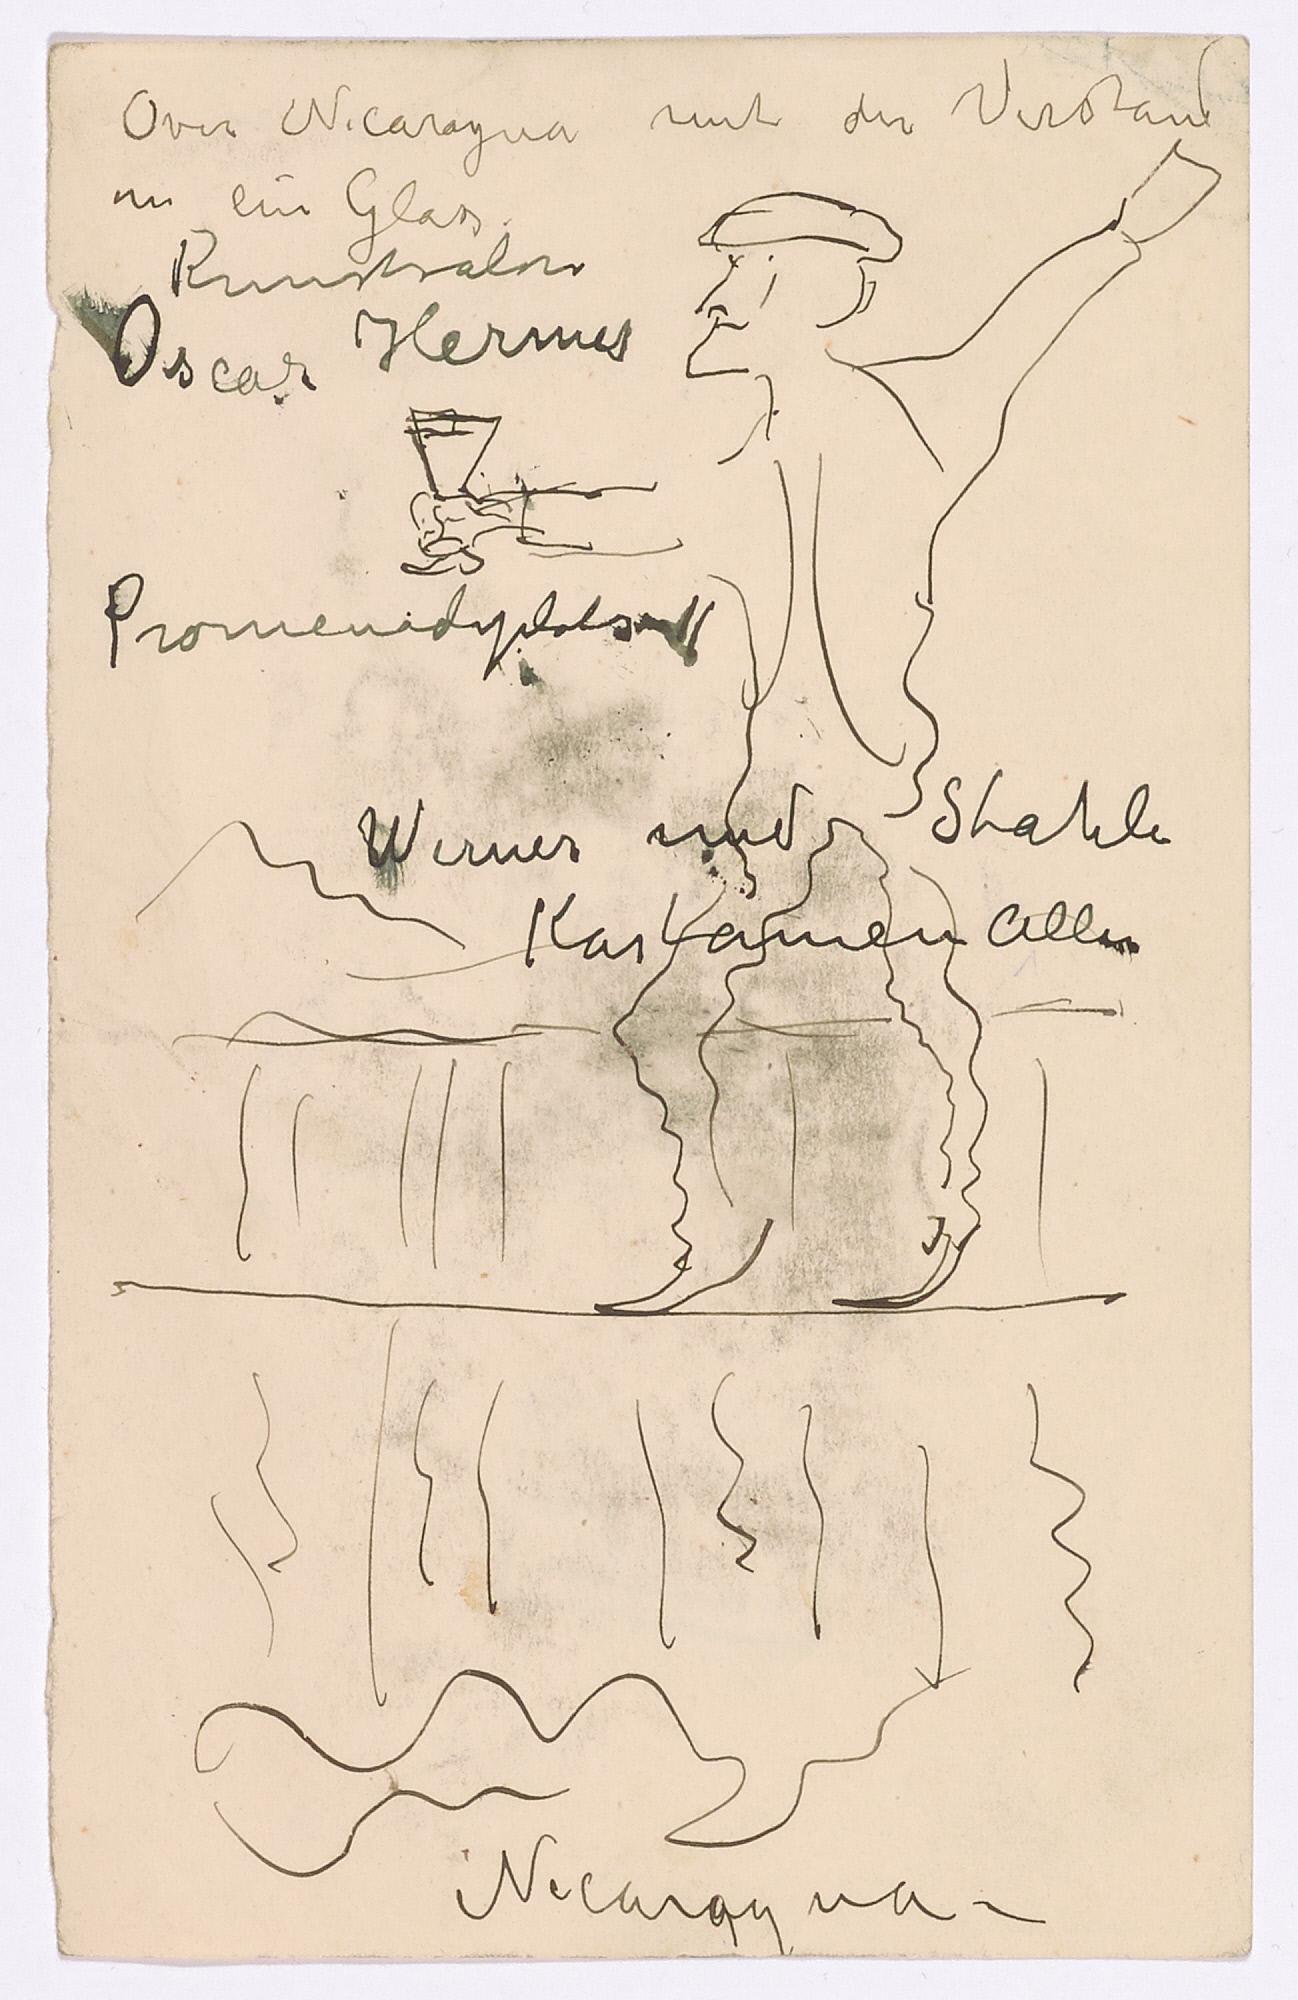 Over Nicaragua mit der Verstand
in ein Glas
Kunstsalon
Oscar Hermes
Promenadeplats 11
Werner und Stahle
Karkamen allen
Nicaragua -